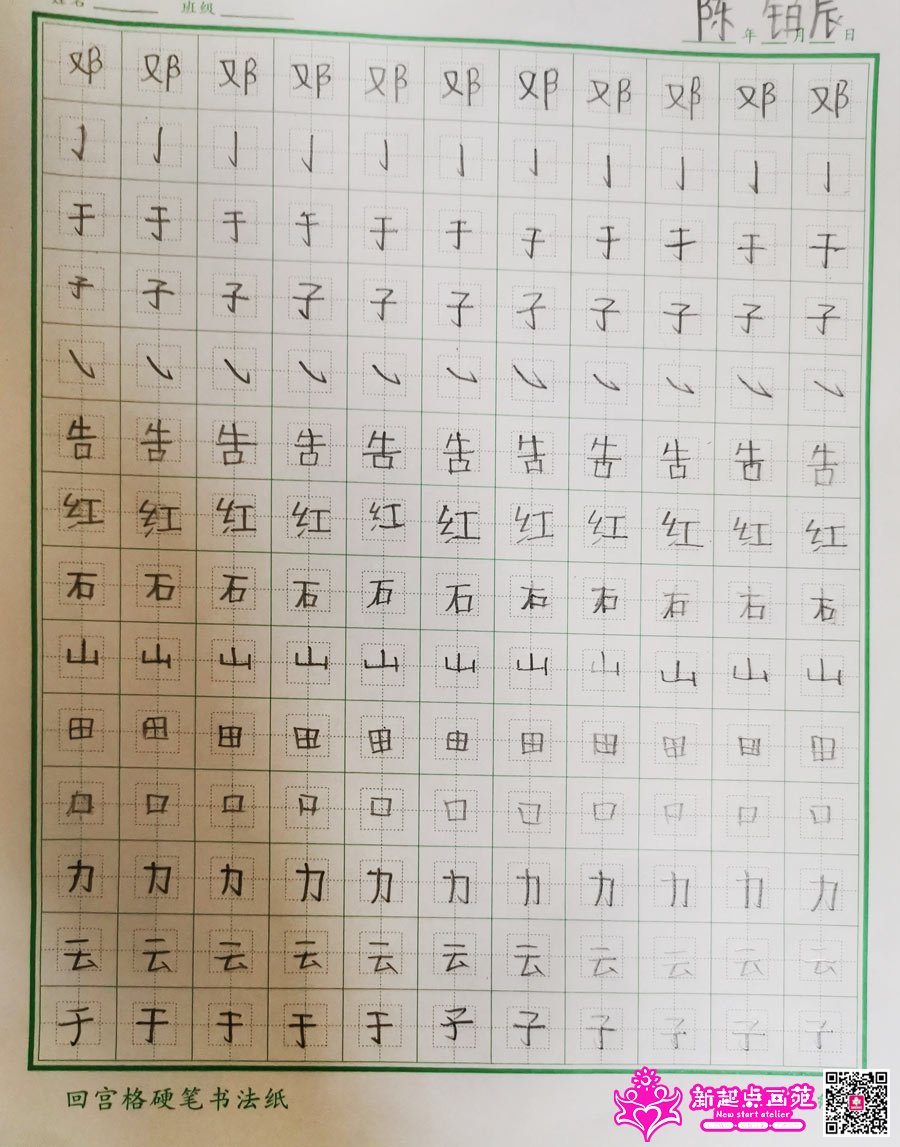 姓名 班级
陈铂辰
年 月 日
邓 邓 邓 邓 邓 邓 邓 邓 邓 邓 邓
亅 亅 亅 亅 亅 亅 亅 亅 亅 亅 亅
于 于 于 于 于 于 于 于 于 于 于
子 子 子 子 子 子 子 子 子 子 子
㇃ ㇃ ㇃ ㇃ ㇃ ㇃ ㇃ ㇃ ㇃ ㇃ ㇃
告 告 告 告 告 告 告 告 告 告 告
红 红 红 红 红 红 红 红 红 红 红
石 石 石 石 石 石 石 石 石 石 石
山 山 山 山 山 山 山 山 山 山 山
田 田 田 田 田 田 田 田 田 田 田
口 口 口 口 口 口 口 口 口 口 口
力 力 力 力 力 力 力 力 力 力 力
云 云 云 云 云 云 云 云 云 云 云
于 于 于 于 于 子 子 子 子 子 子
回宫格硬笔书法纸
新起点画苑
New start atelier